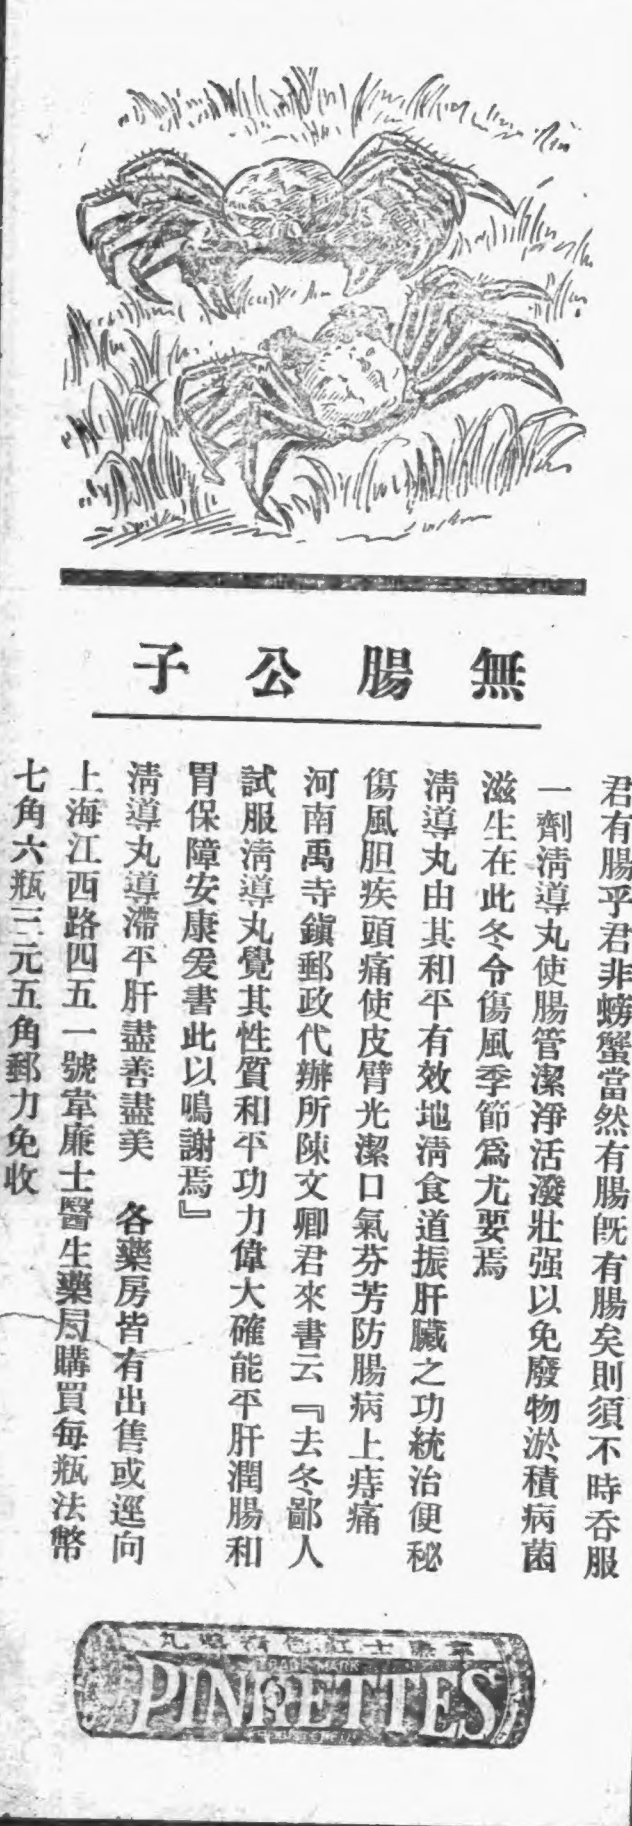 無腸公子
君有腸乎君非螃蟹當然有腸旣有腸矣則須不時吞服
一劑淸導丸使腸管潔淨活潑壯强以免廢物淤積病菌
滋生在此冬令傷風季節爲尤要焉
淸導丸由其和平有效地淸食道振肝臟之功統治便秘
傷風胆疾頭痛使皮臂光潔口氣芬芳防腸病上痔痛
河南禹寺鎭郵政代辦所陳文卿君來書云『去冬鄙人
試服淸導丸覺其性質和平功力偉大確能平肝潤腸和
胃保障安康爰書此以鳴謝焉』
淸導丸導滯平肝盡善盡美　各藥房皆有出售或逕向
上海江西路四五一號韋廉士醫生藥局購買每瓶法幣
七角六瓶三元五角郵力免收
韋廉士紅色淸導丸
TRADE MARK
PINKETTES